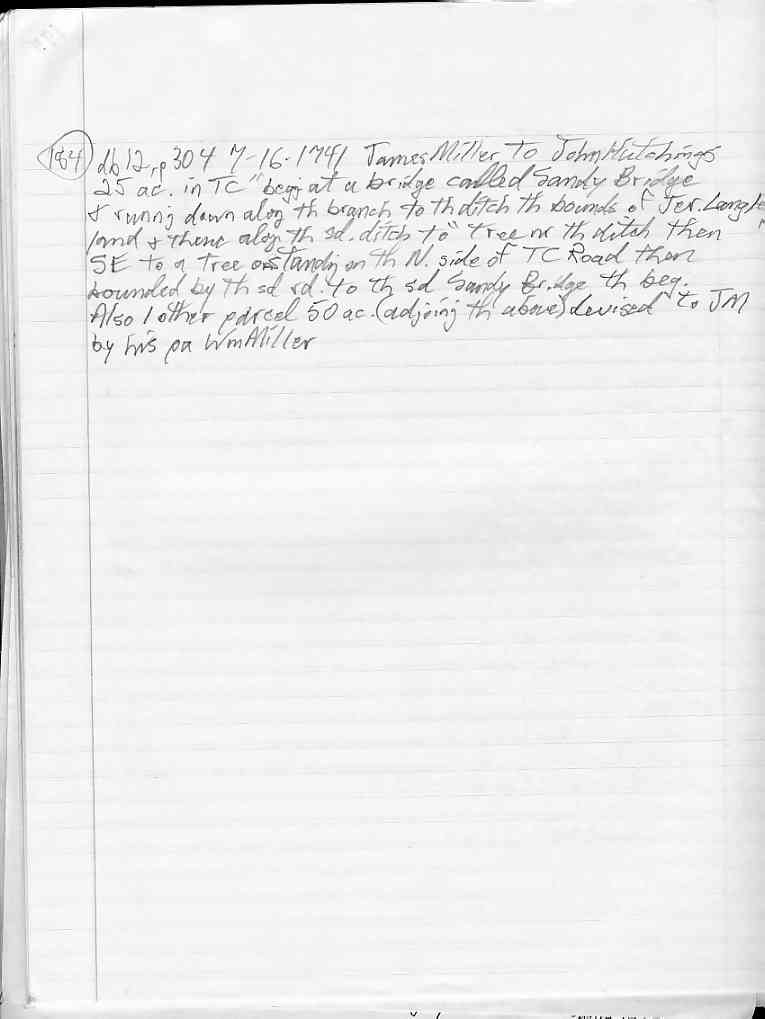 184 db 12, p 304 7-16-1741 James Miller to John Hutchings
25 ac. in TC "beg at a bridge called Sandy Bridge
& runng down along th branch to th ditch th bounds of Jer.
land & thenc along th sd. ditch to" tree nr th ditch then
SE to a tree standing on th N. side of TC Road then
bounded by th sd rd. to th sd Sandy Bridge th beg.
Also 1 other parcel 50 ac. (adjoing th above) devised to JM
by his pa Wm Miller